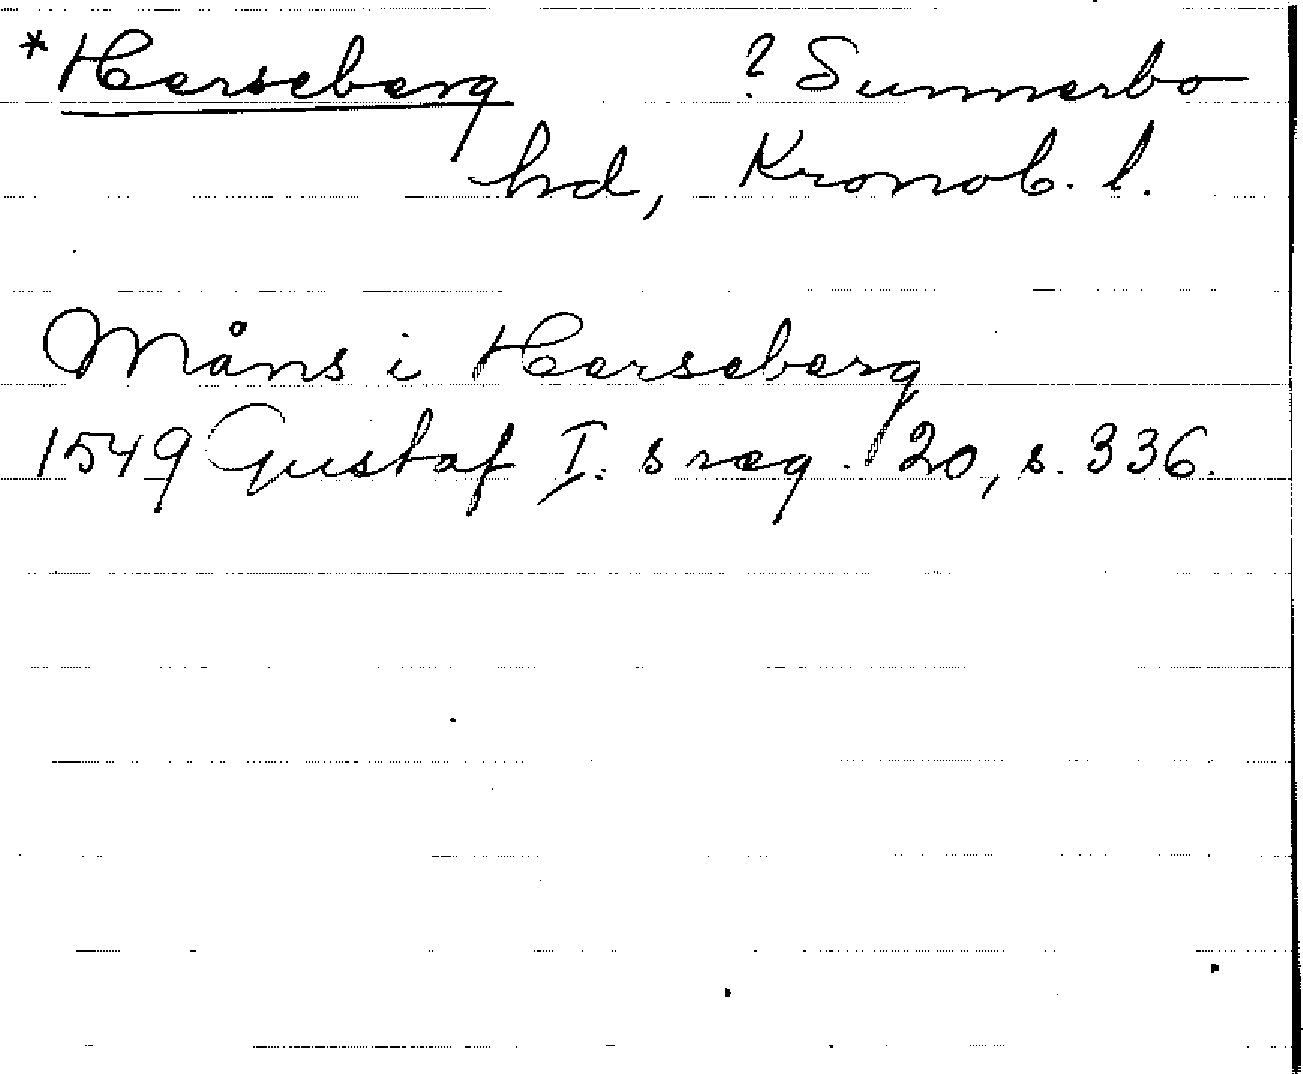 *Herseberg ? Sunnerbo
hd, Kronob. l.
Måns i Herseberg
1549 Gustaf I:s reg. 20, s. 336.